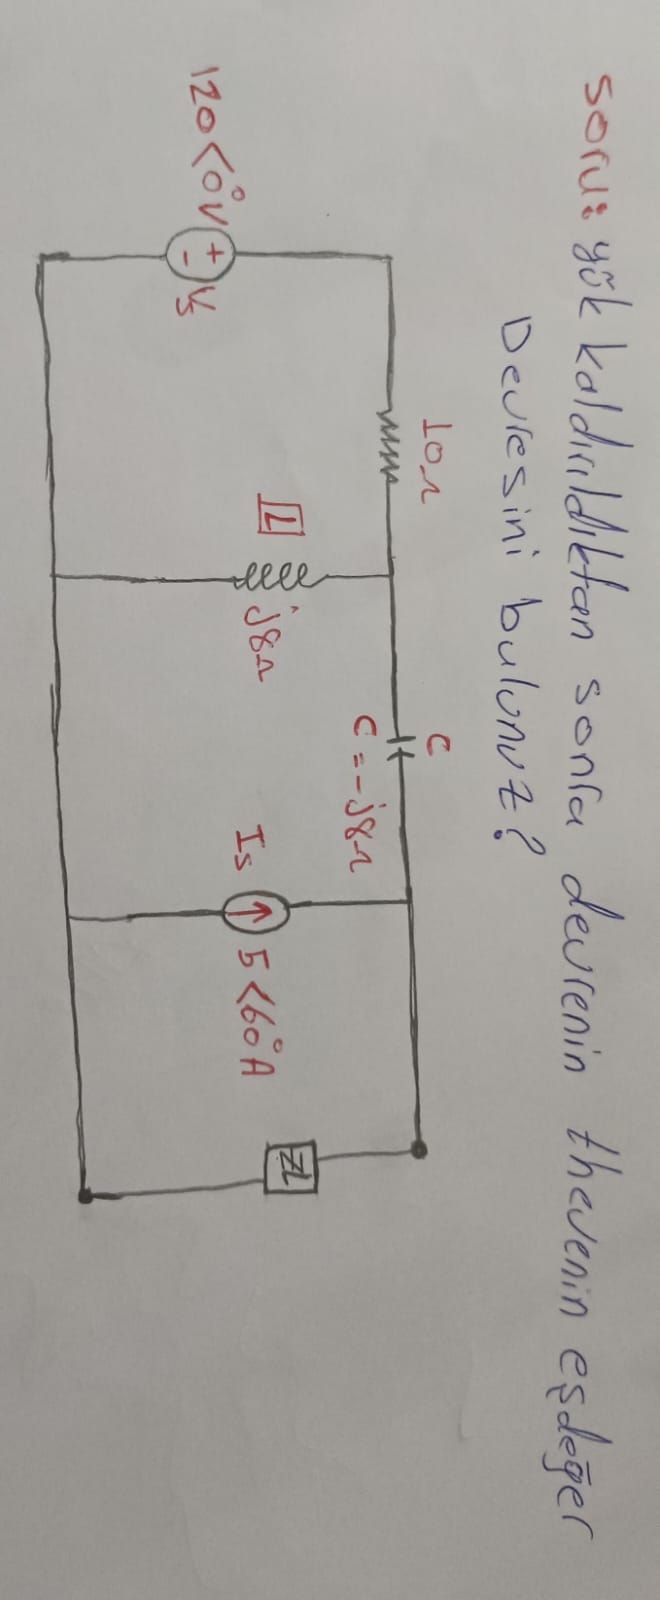 Soru: yük kaldırıldıktan sonra devrenin thevenin eşdeğer
Devresini bulunuz?
10Ω
C
C=-j8Ω
120<0°V
+
-
Vs
L
j8Ω
Is
5<60°A
ZL